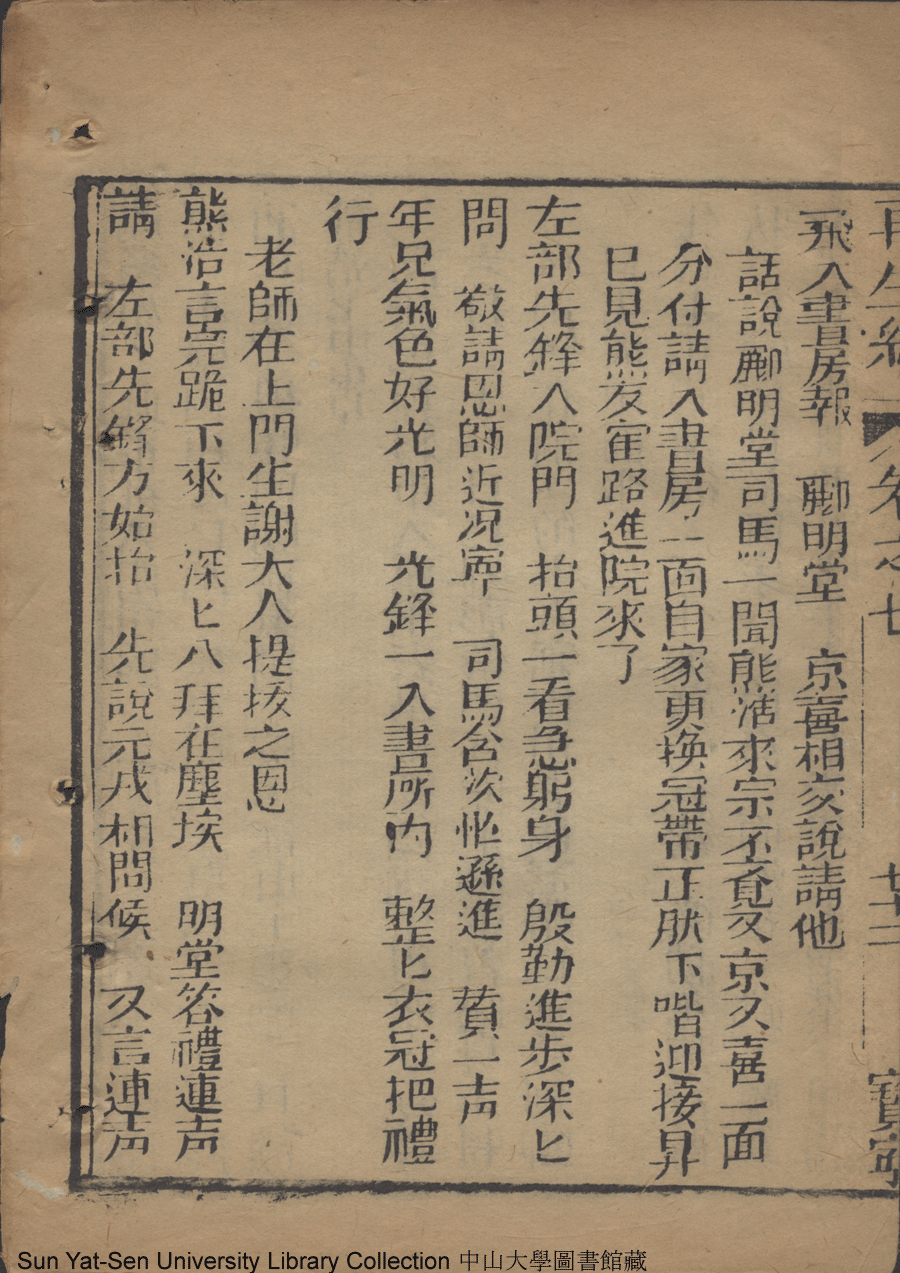 再生緣 卷之七 七十二 寶寧
飛入書房報 酈明堂 京喜相交說請他
話說酈明堂司馬一聞熊浩來宗不覚又京又喜一面
分付請入書房一面自家更换冠帶正肰下階迎接昇
已見熊友寉路進院來了
左部先鋒入院門 抬頭一看急躬身 殷勤進步深匕
問 敬請恩師近况寧 司馬含茨忙遜進 賛一声
年兄氣色好光明 先鋒一入書所內 整匕衣冠把禮
行
老師在上門生謝大人提拔之恩
熊浩言完跪下來 深匕八拜在塵埃 明堂答禮連声
請 左部先鋒方始抬 先說元戎相問候 又言連声
Sun Yat-Sen University Library Collection 中山大學圖書館藏